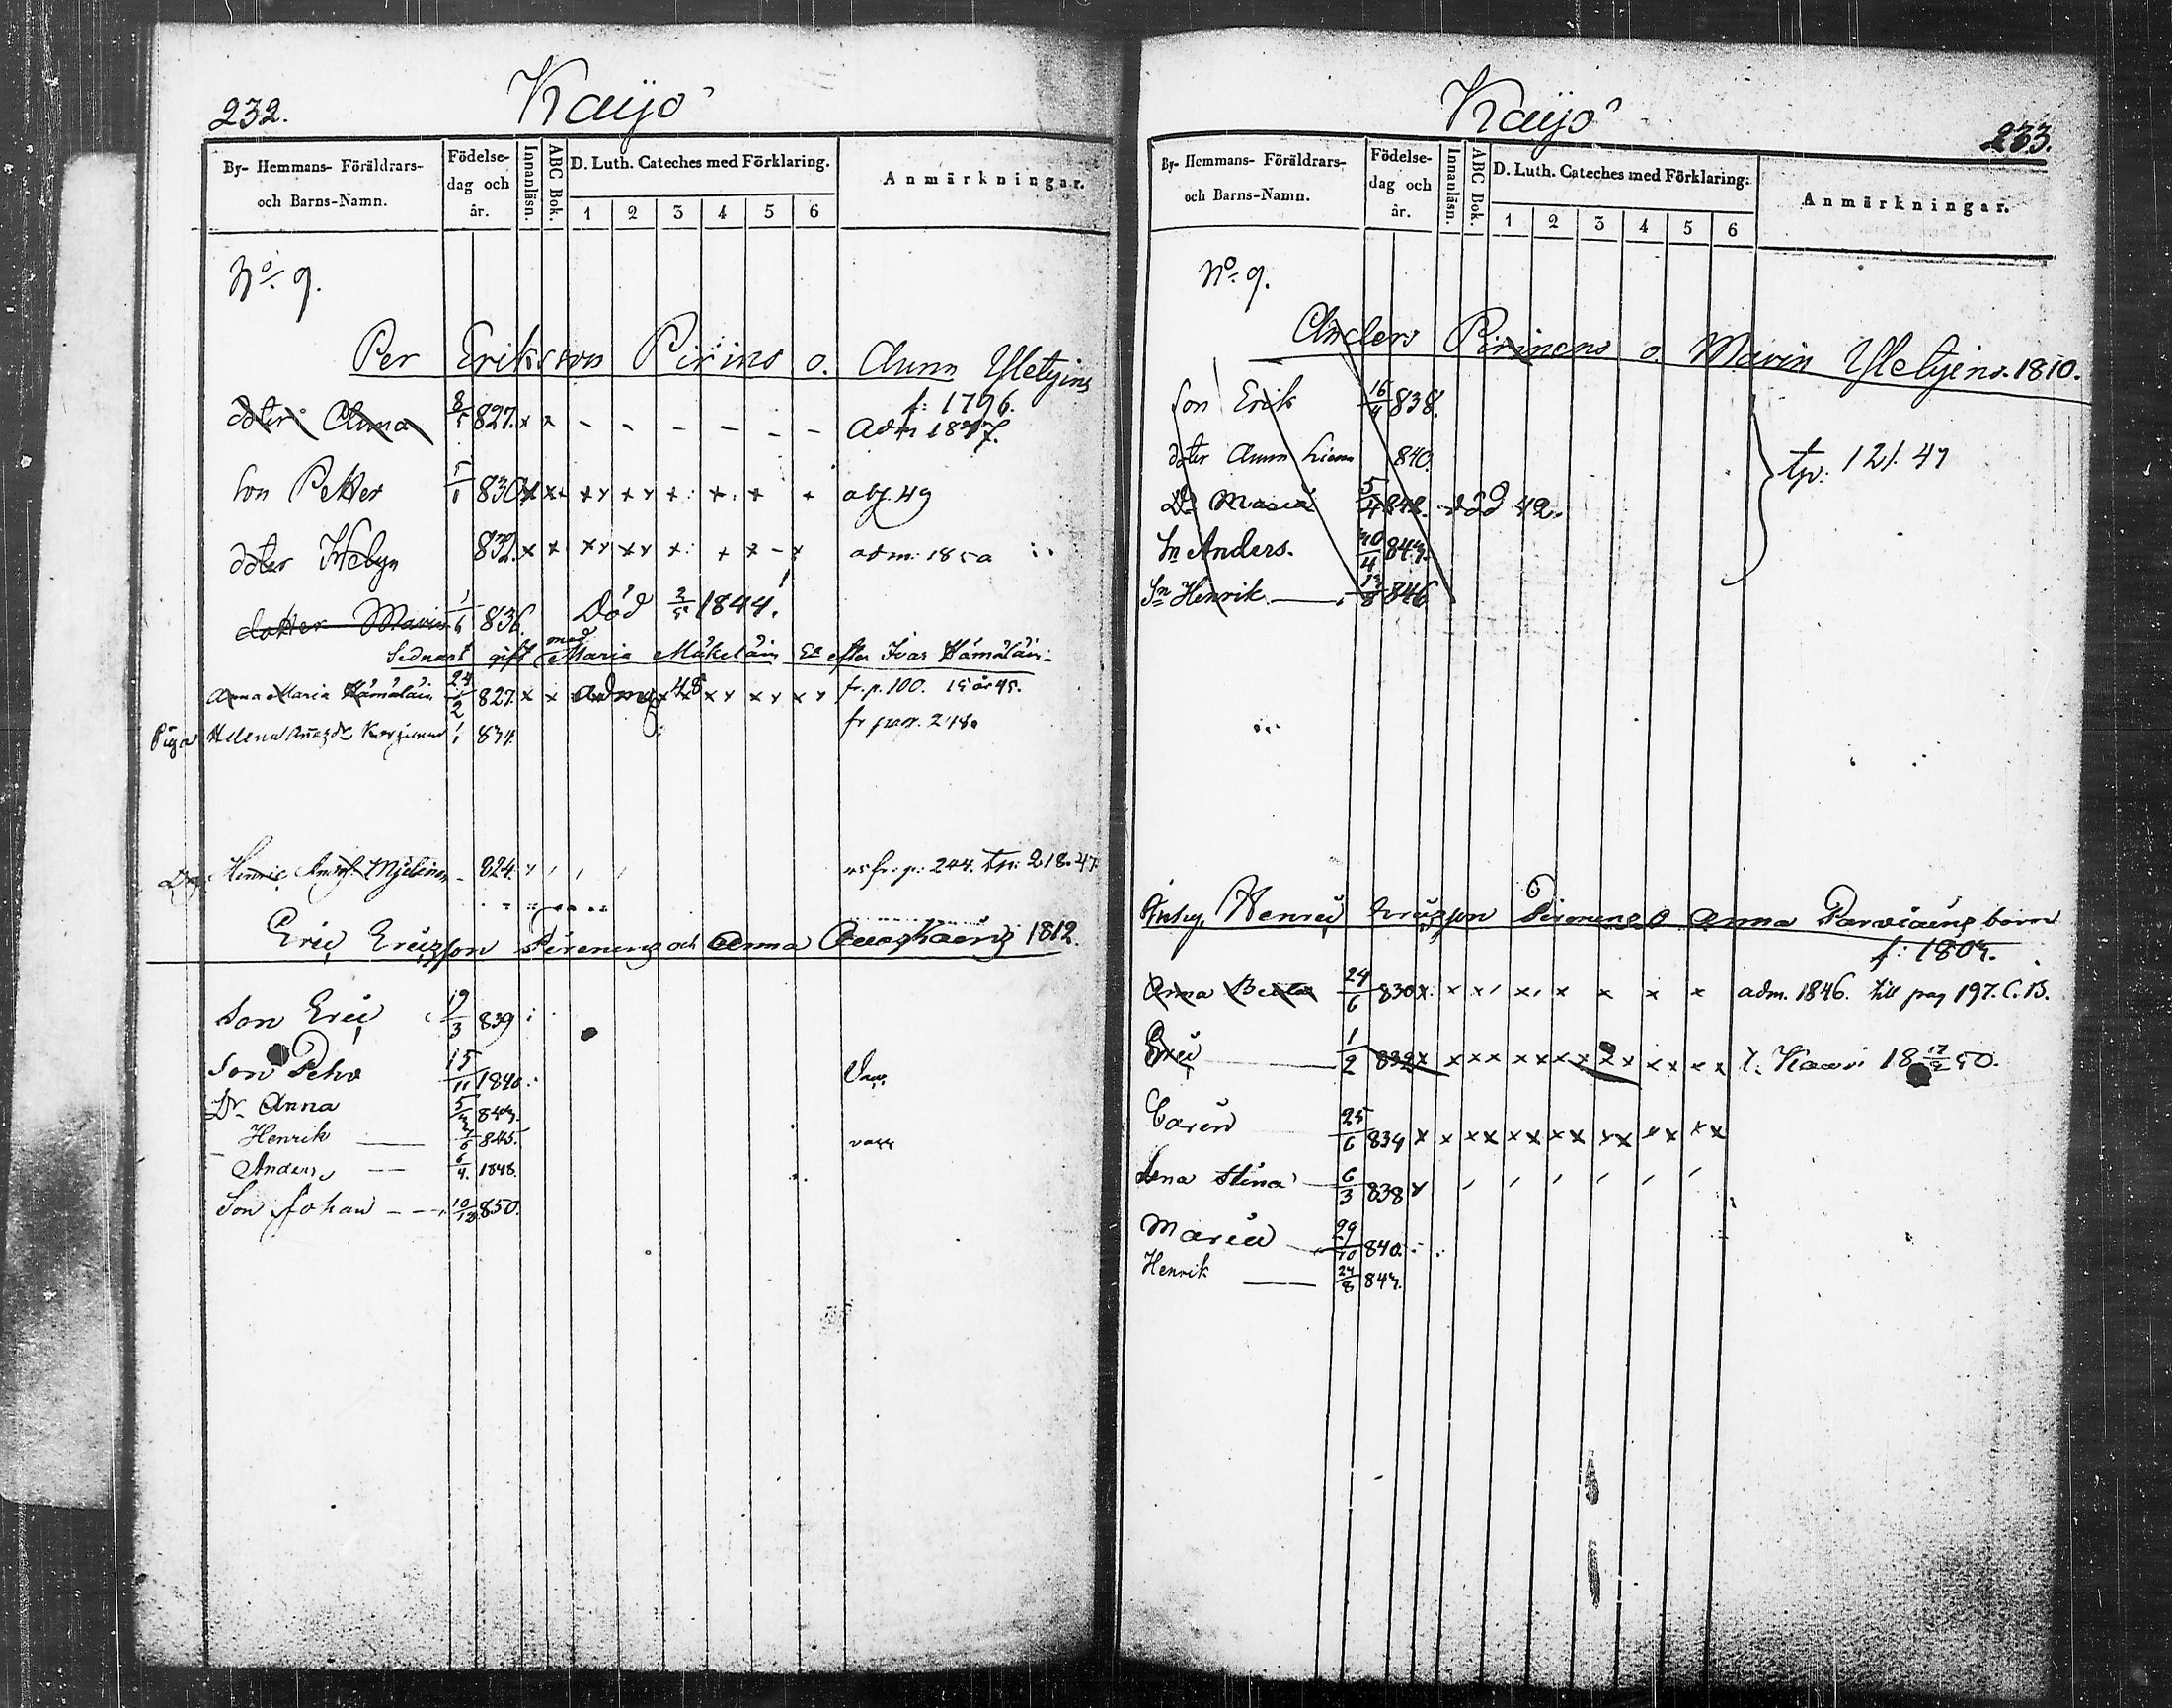 232.
Kaijo
By- Hemmans- Föräldrars-
och Barns-Namn.
Födelse-
dag och
år.
Innanläsn.
ABC Bok.
D. Luth. Cateches med Förklaring.
1 2 3 4 5 6
Anmärkningar.
No. 9.
Per Eriksson Pirinö o. Anna Yletyine
f: 1796.
doter Anna 8/5 827. x x - - - - - - adm 1847.
Son Petter 5/1 830 abg. 49
doter Helyn 832. x x xx xx x: x x - x adm: 1850
dotter Maria 1/6 836. Död 2/5 1844.
Sednast gift med Maria Mäkeläin Ea efter Ivar Hämäläin:
Anna Maria Hämäläin 24/2 827. x x adm 48 fr. p. 100. 15 år 45.
Piga Helena 834. fr pag. 248.
Henric Mielinen 824. fr. p: 244. tp: 218. 47.
Eric Ericsson Pirenens och Anna 1812.
Son Eric 19/3 839
Son Petor 15/11 1840.
Dr. Anna 5/3 843.
Henrik 845. vacc
Anders 6/4. 1848.
Son Johan 10/12 850.
Kaijo
233.
By- Hemmans- Föräldrars-
och Barns-Namn.
Födelse-
dag och
år.
Innanläsn.
ABC Bok.
D. Luth. Cateches med Förklaring:
1 2 3 4 5 6
Anmärkningar.
No. 9.
Anders Pirinens o. Maria Yletyens. 1810.
Son Erik 16/4 838.
doter Anna Lisa 840.
Dr Maria 5/4 842. död 42.
Sn Anders. 843.
Sn Henrik 13/8 846
tp: 121. 47
Inhys. Henric Ericsson Pirenens o Anna Parviains barn
f: 1803.
Anna Beata 24/6 830 x. adm. 1846. till pag 197. C. B.
Eric 1/2 832 x t. Kaavi 18 17/2 50.
Caren 25/6 834 x x xx xx xx xx xx xx
Lena Stina 6/3 838
Maria 29/10 840.
Henrik 24/8 843.